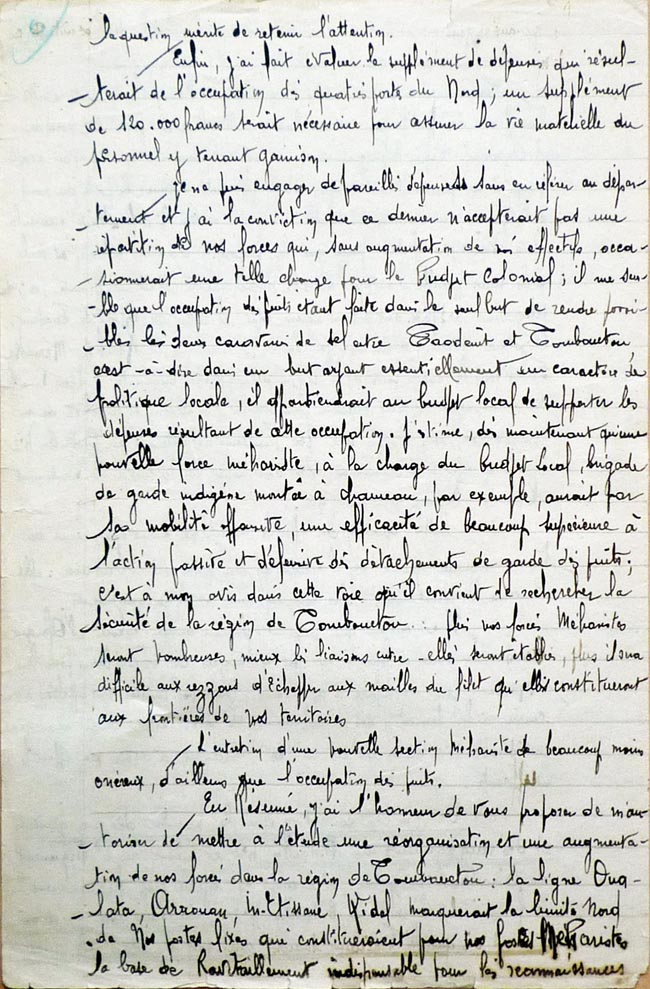 la question mérite de retenir l'attention.
Enfin, j'ai fait évaluer le supplément de dépenses qui résul-
-terait de l'occupation des quatre postes du Nord ; un supplément
de 120.000 francs serait nécessaire pour assurer la vie matérielle du
personnel y tenant garnison.
Je ne puis engager de pareilles dépenses sans en référer au dépar-
-tement et j'ai la conviction que ce dernier n'accepterait pas une
répartition de nos forces qui, sans augmentation de nos effectifs, occa-
-sionnerait une telle charge pour le Budget Colonial ; il me sem-
-ble que l'occupation des puits étant faite dans le seul but de rendre possi-
-bles les deux caravanes de sel entre Taodénit et Tombouctou
c'est-à-dire dans un but ayant essentiellement un caractère de
politique locale, il appartiendrait au budget local de supporter les
dépenses résultant de cette occupation. J'estime, dès maintenant qu'une
nouvelle force méhariste, à la charge du budget local, brigade
de garde indigène montée à chameau, par exemple, aurait par
sa mobilité offensive, une efficacité de beaucoup supérieure à
l'action passive et défensive des détachements de garde des puits ;
c'est à mon avis dans cette voie qu'il convient de rechercher la
sécurité de la région de Tombouctou : plus nos forces Méharistes
seront nombreuses, mieux les liaisons entre elles seront établies, plus il sera
difficile aux rezzous d'échapper aux mailles du filet qu'elles constitueront
aux frontières de nos territoires
L'entretien d'une nouvelle section Méhariste de beaucoup moins
onéreux, d'ailleurs que l'occupation des puits.
En Résumé, j'ai l'honneur de vous proposer de m'au-
-toriser de mettre à l'étude une réorganisation et une augmenta-
-tion de nos forces dans la région de Tombouctou : la ligne Oua-
-lata, Araouan, In-Etissane, Kidal marquerait la limite Nord
de Nos postes fixes qui constitueraient pour nos forces Méharistes
la base de Ravitaillement indispensable pour les reconnaissances